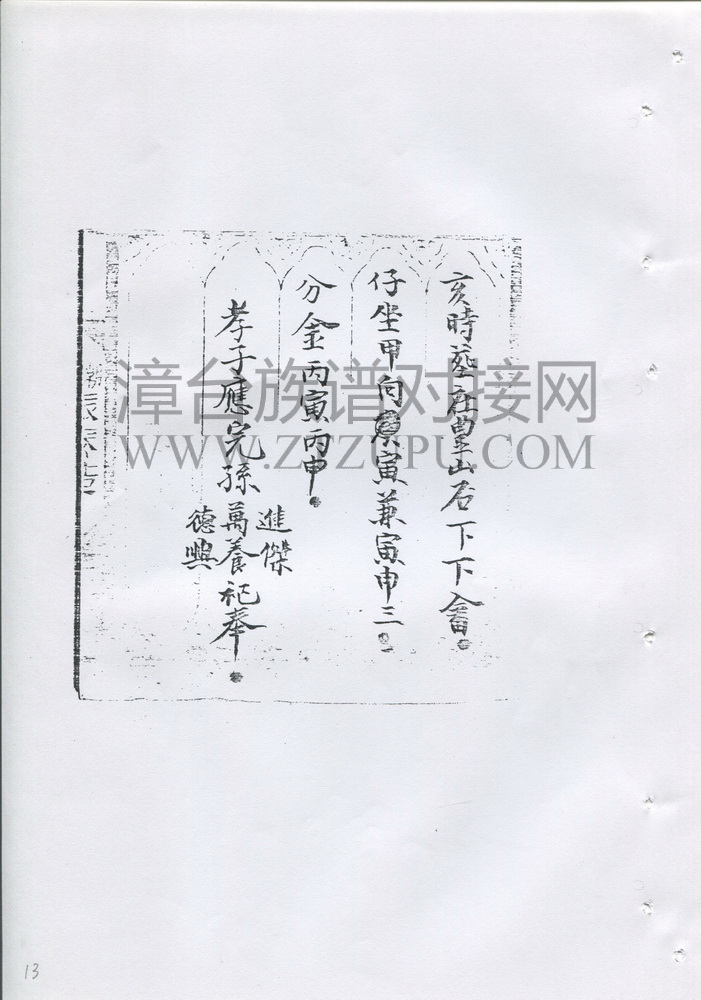 亥時葬在皇山石下下畬
仔坐甲向庚寅兼寅申三
分金丙寅丙申
孝子應完孫萬養祀奉
進傑
德興
漳台族谱对接网
WWW.ZTZUPU.COM
13